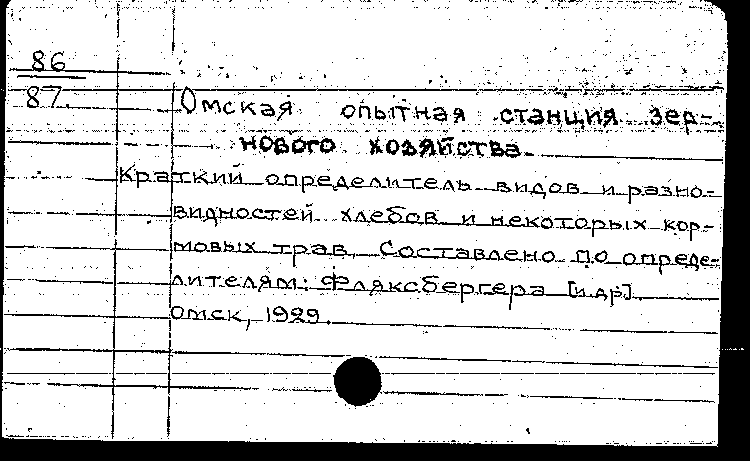 86
87.
Омская опытная станция зер-
нового хозяйства.
Краткий определитель видов и разно-
видностей хлебов и некоторых кор-
мовых трав. Составлено по опреде-
лителям: Фляксбергера [и др].
Омск, 1929.